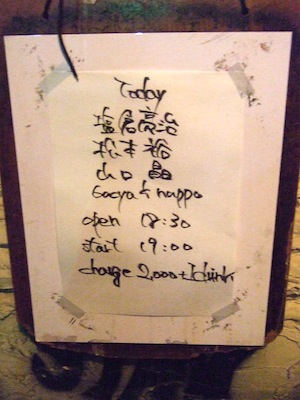 Today
塩倉亮治
松本裕
山口晶
Gooya & nappo
open 18:30
start 19:00
charge 2,000+1drink